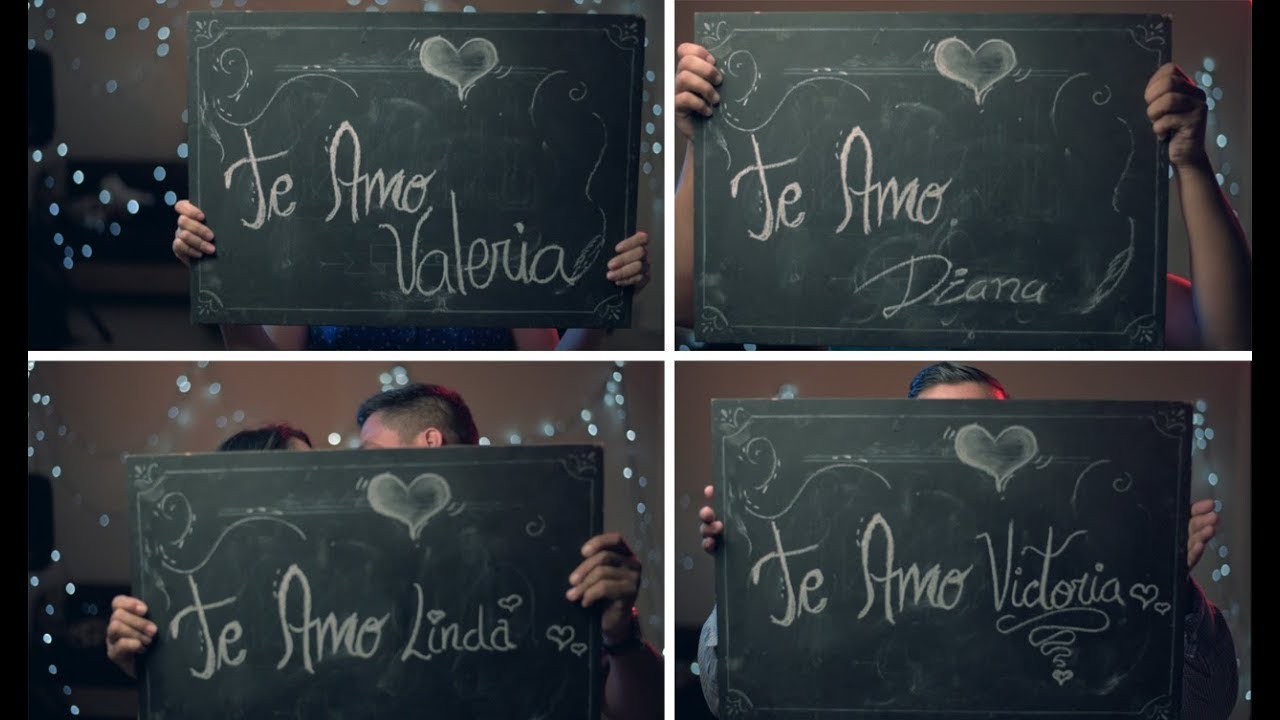 Te Amo
Valeria
Te Amo
Diana
Te Amo Linda
Te Amo Victoria